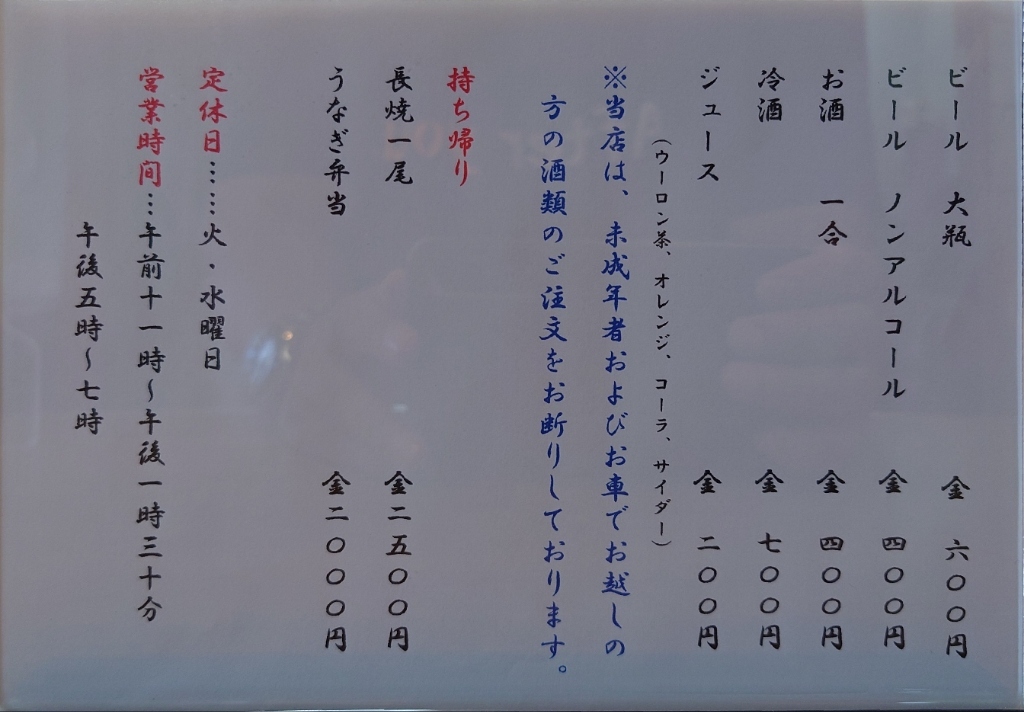 ビール 大瓶 金 六〇〇円
ビール ノンアルコール 金 四〇〇円
お酒 一合 金 四〇〇円
冷酒 金 七〇〇円
ジュース 金 二〇〇円
（ウーロン茶、オレンジ、コーラ、サイダー）
※当店は、未成年者およびお車でお越しの
方の酒類のご注文をお断りしております。
持ち帰り
長焼一尾 金二五〇〇円
うなぎ弁当 金二〇〇〇円
定休日……火・水曜日
営業時間…午前十一時～午後一時三十分
午後五時～七時